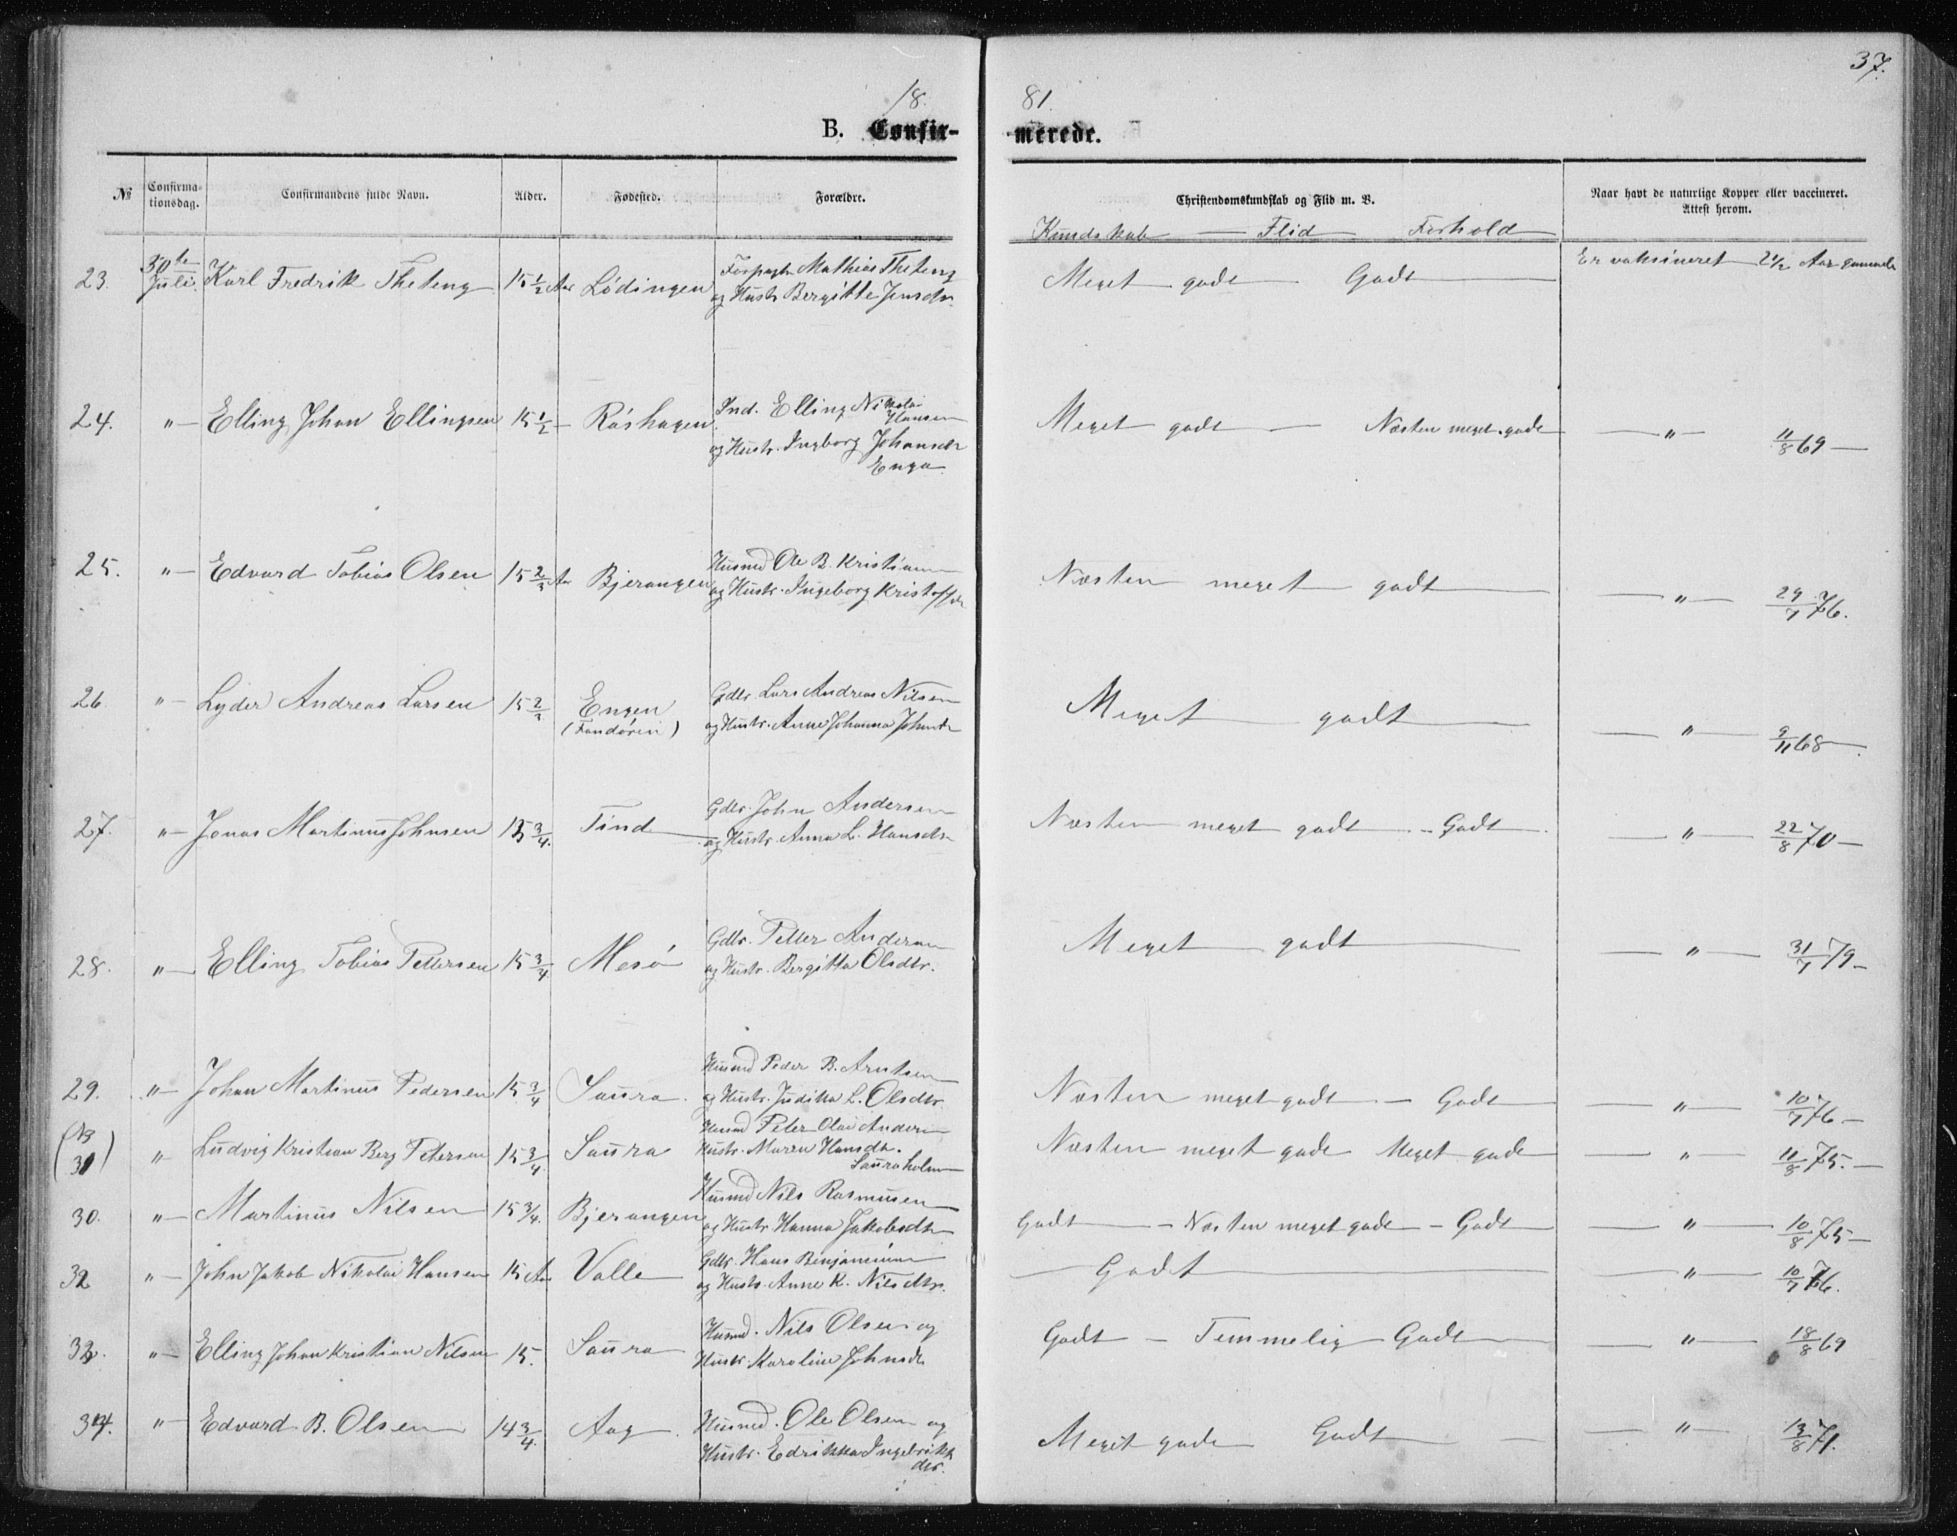 37.
18 81.
B. Confirmerede.
№ Confirmationsdag. Confirmandens fulde Navn. Alder. Fødested. Forældre. Christendomskundskab og Flid m. V. Naar havt de naturlige Kopper eller vaccineret. Attest herom.
Kundskab — Flid Forhold
23. 30te Juli Karl Fredrik Theteng 15 1/2 Aar Lødingen Mathias Theteng Meget godt Godt Er vaksineret 2 1/2 Aar gammel
og Hustr. Bergitte Jensdtr.
24. "— Elling Johan Ellingsen 15 1/2 — Røshagen Ind. Elling Nikolai Hansen Meget godt — Næsten meget godt —"— 11/8 69 —
og Hustr. Ingborg Johansdtr
Enga
25. "— Edvard Tobias Olsen 15 2/3 Aar Bjerangen Husmd Ole B. Kristiansen Næsten meget godt —"— 29/7 76.
og Hustr. Ingeborg Kristoffdtr
26. "— Lyder Andreas Larsen 15 2/3 Engen Gdbr. Lars Andreas Nilsen Meget godt —"— 9/11 68 —
(Fondøren) og Hustr. Anne Johanna Johnsdtr
27. "— Jonas Martinus Johnsen 15 3/4. Tind Gdbr. John Andersen Næsten meget godt — Godt —"— 22/8 70 —
og Hustr. Anna L. Hansdtr
28. "— Elling Tobias Pettersen 15 3/4 Mesø Gdbr. Petter Andersen Meget godt —"— 31/7 79 —
og Hustr. Bergitta Olsdtr.
29. "— Johan Martinus Pedersen 15 3/4 Saura. Husmd Peder B. Arntsen Næsten meget godt — Godt —"— 10/7 76 —
og Hustr. Juditha L. Olsdtr.
(NB 31) " Ludvig Kristian Berg Petersen 15 3/4. Saura Husmd Peter Olai Andersen Næsten meget godt Meget godt —"— 11/8 75. —
Hustr. Maren Hansdtr.
Sauraholmen
30. "— Martinus Nilsen 15 3/4. Bjerangen Husmd Nils Rasmusen Godt — Næsten meget godt — Godt —"— 10/8 75 —
og Hustr. Hanna Jakobsdtr
32 "— John Jakob Nikolai Hansen 15 Aar Valle Gdbr. Hans Benjaminsen — Godt —"— 10/7 76.
og Hustr. Anne K. Nilsdtr.
33. "— Elling Johan Kristian Nilsen 15. Saura Husmd. Nils Olsen og Godt — Temmelig Godt —"— 18/8 69
Hustr. Karoline Johnsdtr
34. "— Edvard B. Olsen 14 3/4. Aag. Husmd. Ole Olsen og Meget godt Godt —"— 13/8 71.
Hustr. Edrikka Ingebrikt
dtr.